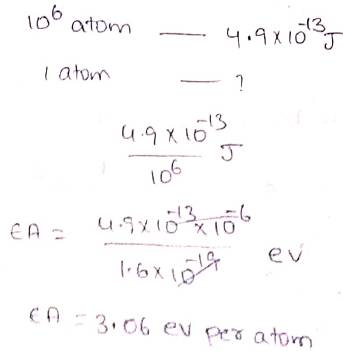 10⁶ atom — 4.9×10⁻¹³J
1 atom — ?
4.9 × 10⁻¹³
10⁶ J
EA = 4.9×10⁻¹³ × 10⁻⁶
1.6×10⁻¹⁹ ev
EA = 3.06 ev per atom